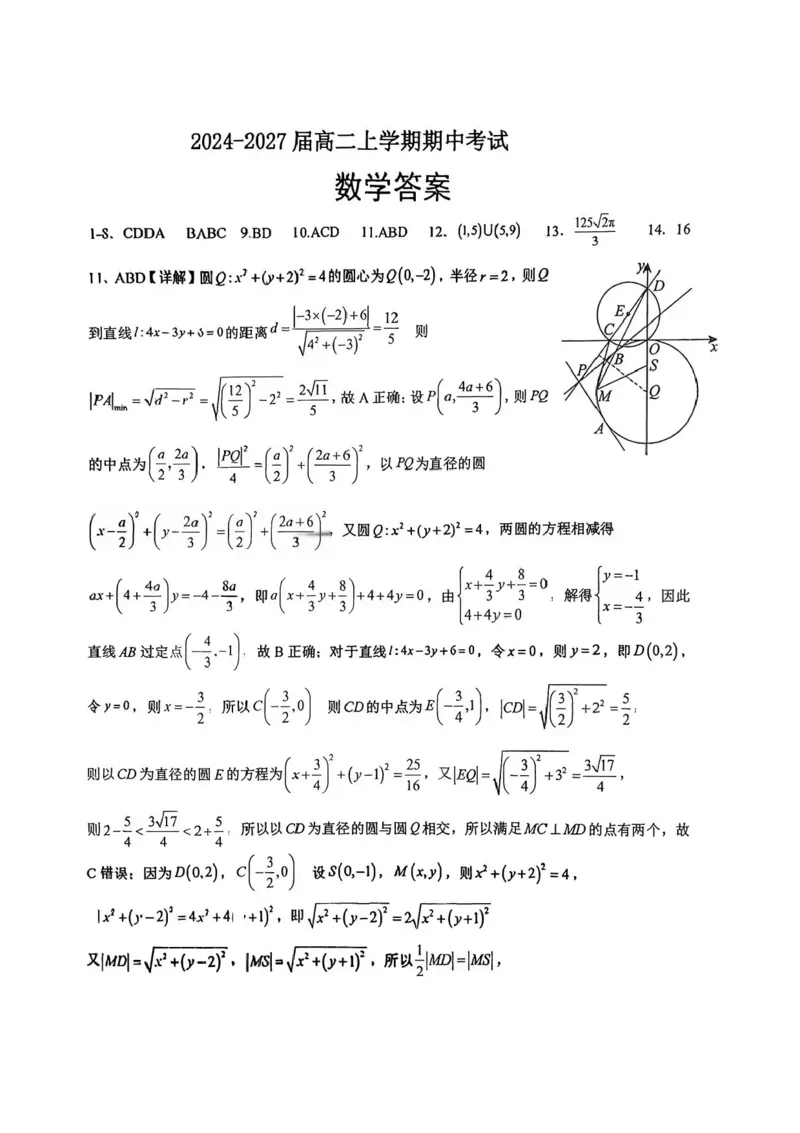 2024-2027 届高二上学期期中考试
数学答案
1-8、CDDA BABC 9.BD 10.ACD 11.ABD 12. (1,5)∪(5,9) 13. 125√2π/3 14. 16
11、ABD【详解】圆Q:x²+(y+2)²=4的圆心为Q(0,-2), 半径r=2, 则Q
到直线l:4x-3y+6=0的距离d=|-3×(-2)+6|/√(4²+(-3)²)=12/5 则
|PA|min=√(d²-r²)=√((12/5)²-2²)=2√11/5, 故A正确; 设P(a,(4a+6)/3), 则PQ
的中点为(a/2,2a/3). |PQ|²/4=(a/2)²+((2a+6)/3)², 以PQ为直径的圆
(x-a/2)²+(y-2a/3)²=(a/2)²+((2a+6)/3)², 又圆Q:x²+(y+2)²=4, 两圆的方程相减得
ax+(4+4a/3)y=-4-8a/3, 即a(x+4/3y+8/3)+4+4y=0, 由{x+4/3y+8/3=0 4+4y=0; 解得{y=-1 x=-4/3, 因此
直线AB过定点(-4/3,-1); 故B正确; 对于直线l:4x-3y+6=0, 令x=0, 则y=2, 即D(0,2),
令y=0, 则x=-3/2; 所以C(-3/2,0) 则CD的中点为E(-3/4,1), |CD|=√((3/2)²+2²)=5/2;
则以CD为直径的圆E的方程为(x+3/4)²+(y-1)²=25/16, 又|EQ|=√((-3/4)²+3²)=3√17/4,
则2-5/4<3√17/4<2+5/4; 所以以CD为直径的圆与圆Q相交, 所以满足MC⊥MD的点有两个, 故
C错误; 因为D(0,2), C(-3/2,0) 设S(0,-1), M(x,y), 则x²+(y+2)²=4,
x²+(y-2)²=4x²+4 +1)², 即√(x²+(y-2)²)=2√(x²+(y+1)²)
又|MD|=√(x²+(y-2)²), |MS|=√(x²+(y+1)²), 所以1/2|MD|=|MS|,
y
D
E
C
O
x
B
S
P
M
Q
A